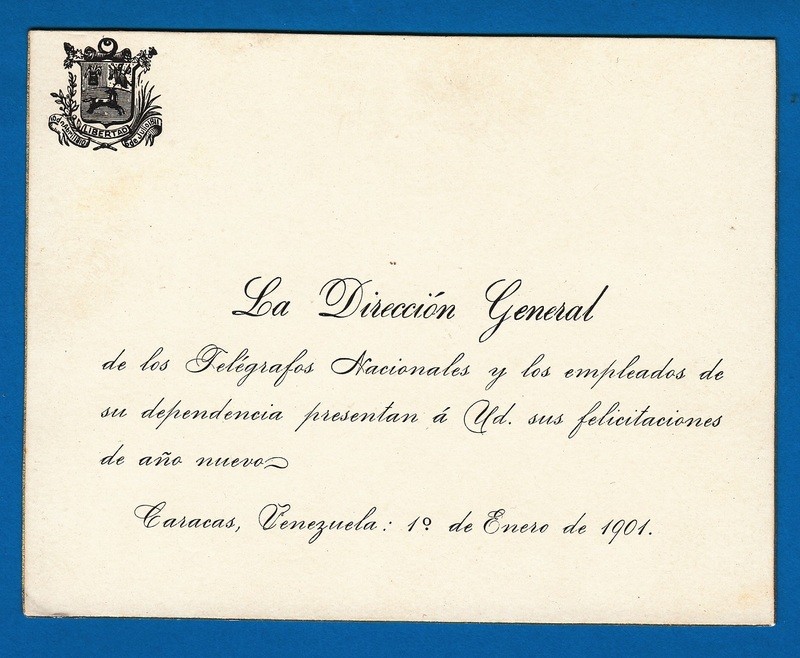 LIBERTAD
La Dirección General
de los Telégrafos Nacionales y los empleados de
su dependencia presentan á Ud. sus felicitaciones
de año nuevo
Caracas, Venezuela: 1º de Enero de 1901.